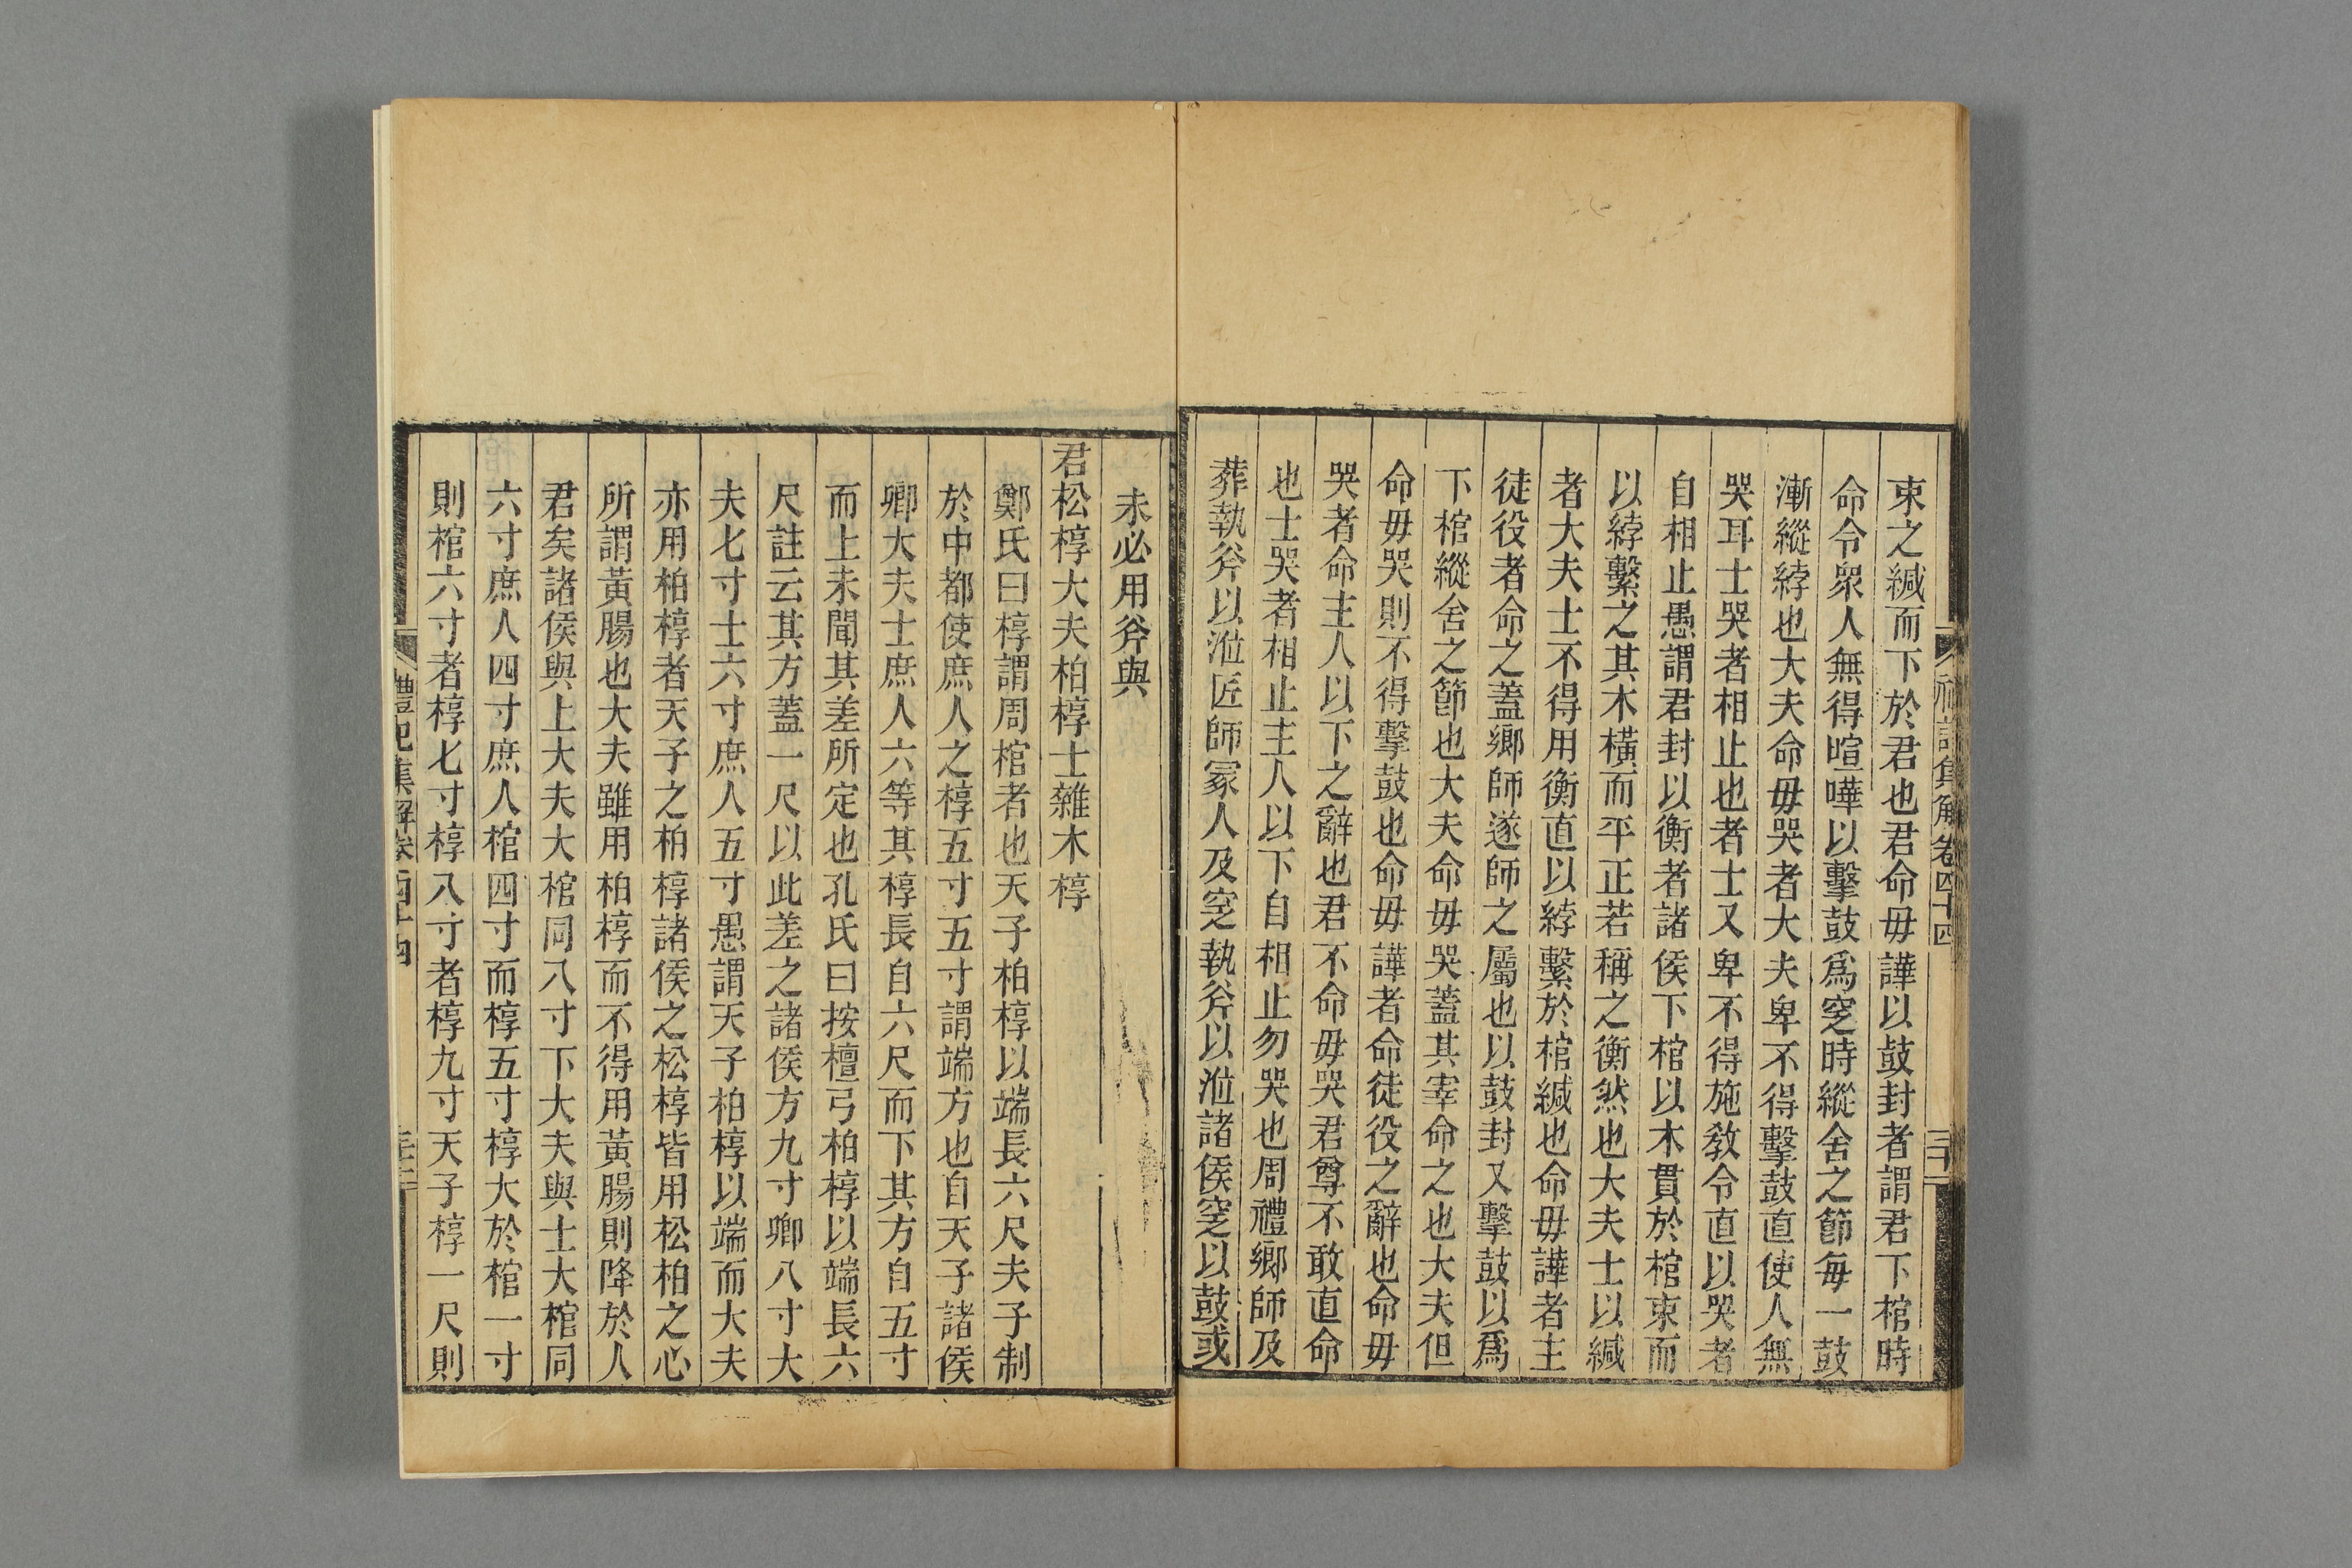 束之緘而下於君也君命毋譁以鼓封者謂君下棺時
命令衆人無得喧嘩以擊鼓爲窆時縱舍之節每一鼓
漸縱綍也大夫命毋哭者大夫卑不得擊鼓直使人無
哭耳士哭者相止也者士又卑不得施敎令直以哭者
自相止愚謂君封以衡者諸侯下棺以木貫於棺束而
以綍繫之其木橫而平正若稱之衡然也大夫士以緘
者大夫士不得用衡直以綍繫於棺緘也命毋譁者主
徒役者命之蓋鄉師遂師之屬也以鼓封又擊鼓以爲
下棺縱舍之節也大夫命毋哭蓋其宰命之也大夫但
命毋哭則不得擊鼓也命毋譁者命徒役之辭也命毋
哭者命主人以下之辭也君不命毋哭君尊不敢直命
也士哭者相止主人以下自相止勿哭也周禮鄉師及
葬執斧以涖匠師冢人及窆執斧以涖諸侯窆以鼓或
未必用斧與
君松椁大夫柏椁士雜木椁
鄭氏曰椁謂周棺者也天子柏椁以端長六尺夫子制
於中都使庶人之椁五寸五寸謂端方也自天子諸侯
卿大夫士庶人六等其椁長自六尺而下其方自五寸
而上未聞其差所定也孔氏曰按檀弓柏椁以端長六
尺註云其方蓋一尺以此差之諸侯方九寸卿八寸大
夫七寸士六寸庶人五寸愚謂天子柏椁以端而大夫
亦用柏椁者天子之柏椁諸侯之松椁皆用松柏之心
所謂黃腸也大夫雖用柏椁而不得用黃腸則降於人
君矣諸侯與上大夫大棺同八寸下大夫與士大棺同
六寸庶人四寸庶人棺四寸而椁五寸椁大於棺一寸
則棺六寸者椁七寸椁八寸者椁九寸天子椁一尺則
禮記集解卷四十四